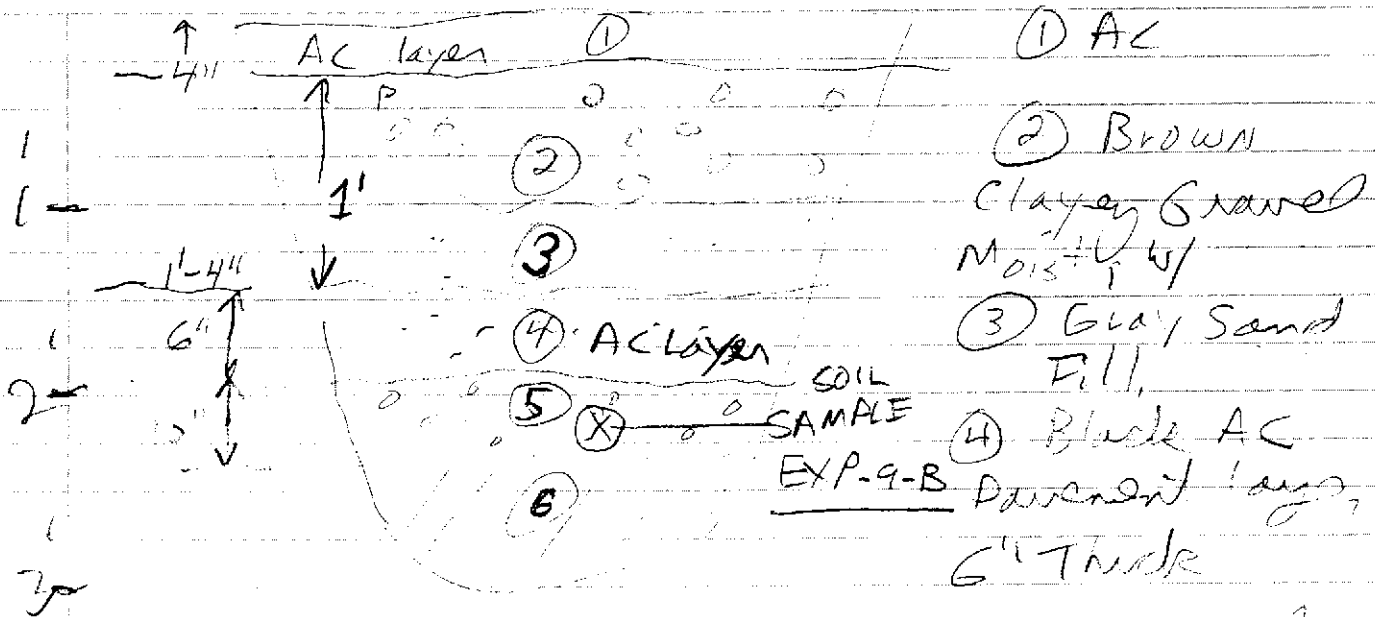 AC layer ①
4"
1
②
1 - 1'
③
1'-4"
6"
④ AC Layer
2 -
⑤
Ⓧ SOIL
SAMPLE
EXP-9-B
⑥
① AC
② Brown
Clayey Gravel
Moist, w/
③ Gray Sand
Fill,
④ Black AC
Pavement
6" Thick